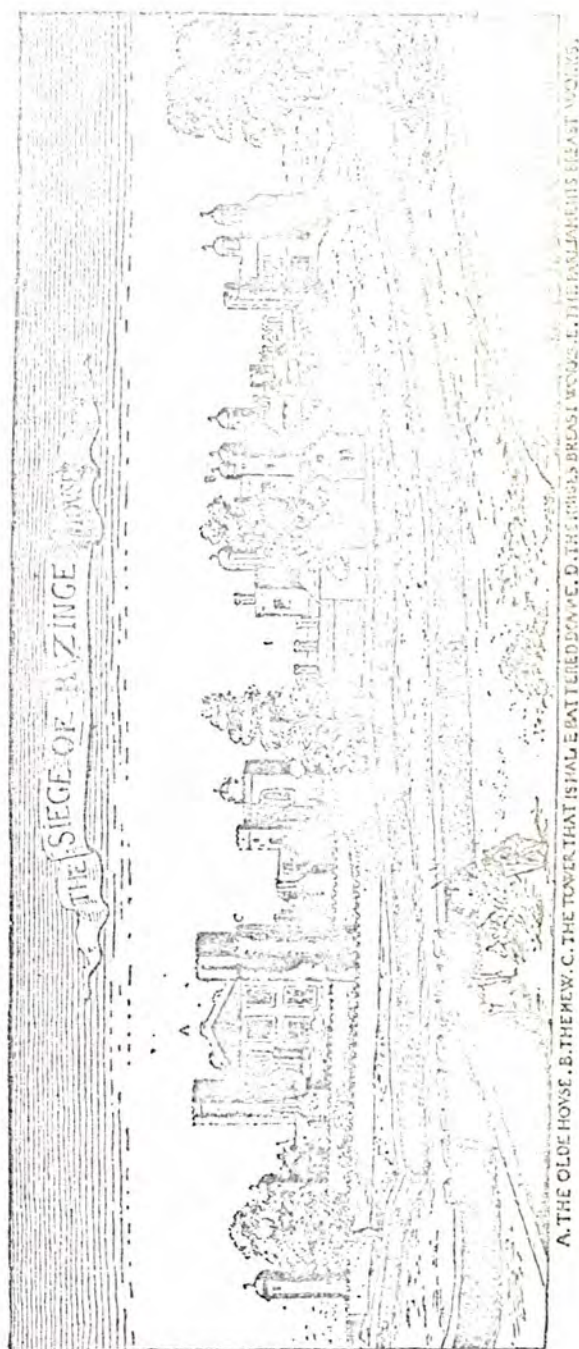 THE SIEGE OF BAZINGE HOVSE
A
C
B
A. THE OLDE HOVSE. B. THE NEW. C. THE TOWER THAT IS HALFE BATTERED DOWNE. D. THE KINGES BREAST WORKS. E. THE PARLIAMENTS BREAST WORKS.